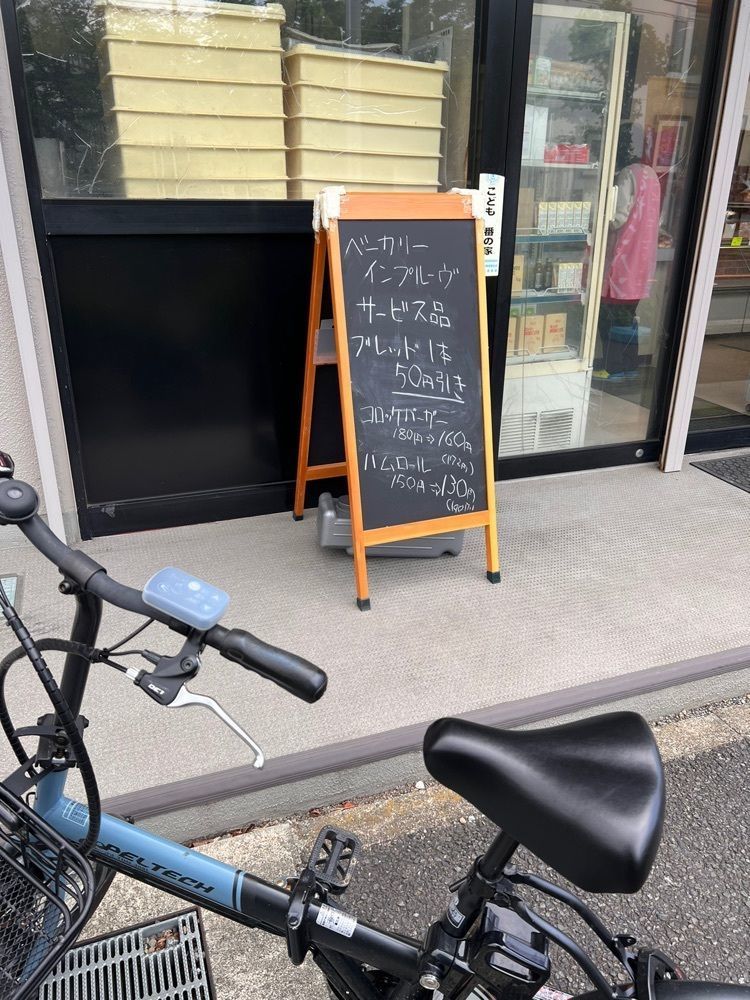 ベーカリー
インプルーヴ
サービス品
ブレッド1本
50円引き
コロッケバーガー
180円⇒160円
(172円)
ハムロール
150円⇒130円
(140円)
こども 番の家
PELTECH